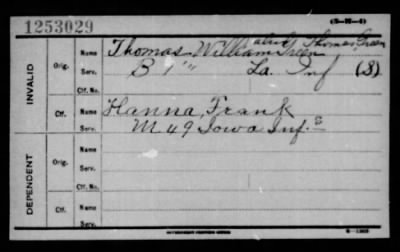 1253029
(3-H-4)
INVALID
Orig. Name Thomas, William alias Thomas Green
Serv. B 1" La. Inf (S)
Ctf. No.
Ctf. Name Hanna, Frank
Serv. M 49 Iowa Inf. S
DEPENDENT
Orig. Name
Serv.
Ctf. No.
Ctf. Name
Serv.